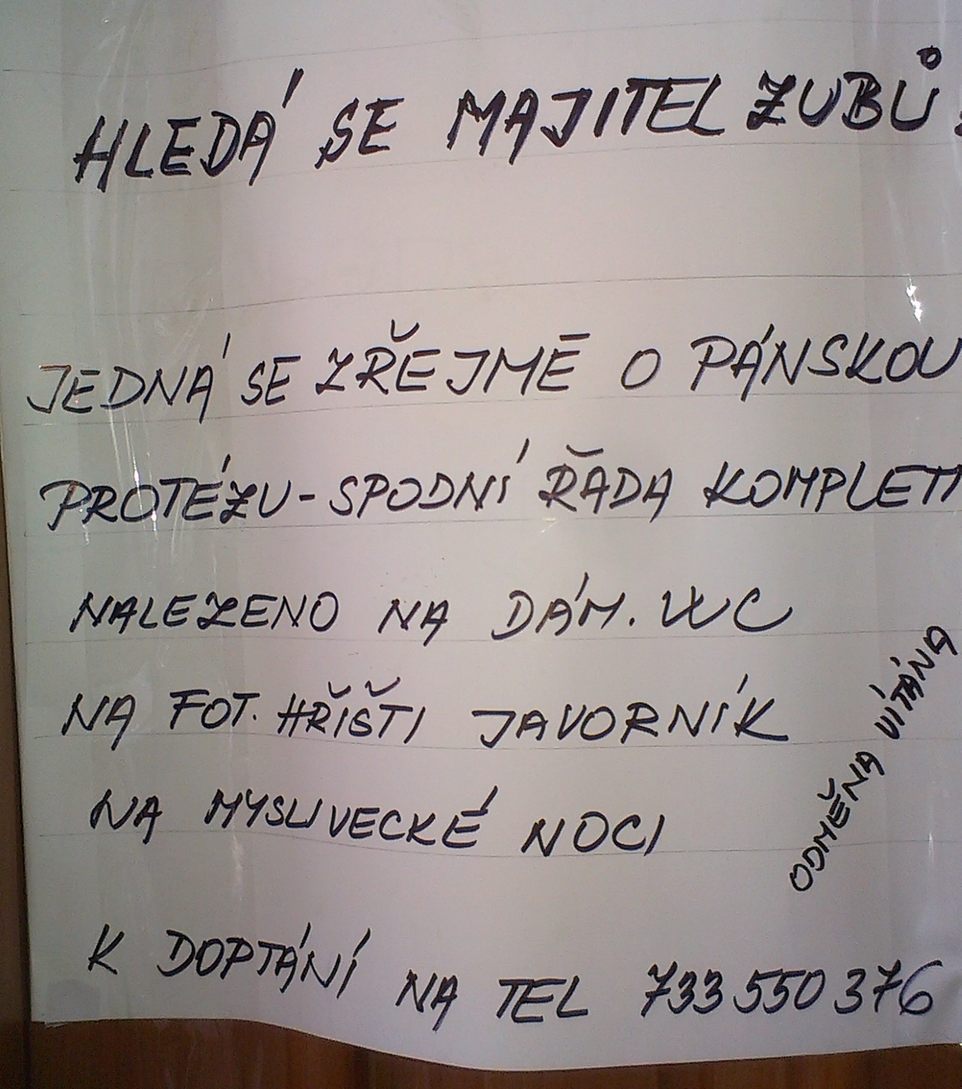 HLEDÁ SE MAJITEL ZUBŮ
JEDNÁ SE ZŘEJMĚ O PÁNSKOU
PROTÉZU - SPODNÍ ŘADA KOMPLETI
NALEZENO NA DÁM. WC
NA FOT. HŘIŠTI JAVORNÍK
NA MYSLIVECKÉ NOCI
ODMĚNA VÍTÁNA
K DOPTÁNÍ NA TEL 733 550 376